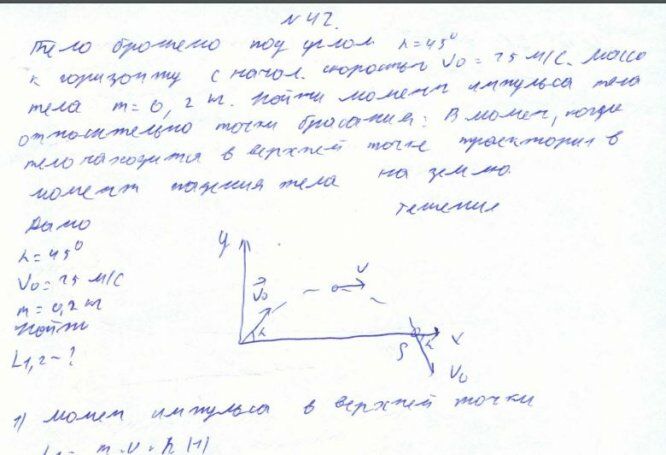 N 42.
Тело брошено под углом α=45°
к горизонту с начал. скоростью V₀ = 25 м/с. Масса
тела m = 0,2 кг. Найти момент импульса тела
относительно точки бросания: В момен, когда
тело находится в верхней точке траектории в
момент падения тела на землю.
Решение
Дано
α=45°
V₀ = 25 м/с
m = 0,2 кг
Найти
L₁,₂ - ?
y
V₀
α
V
S
α
x
V₀
1) момен импульса в верхней точки
L₁ = m·v·h (1)